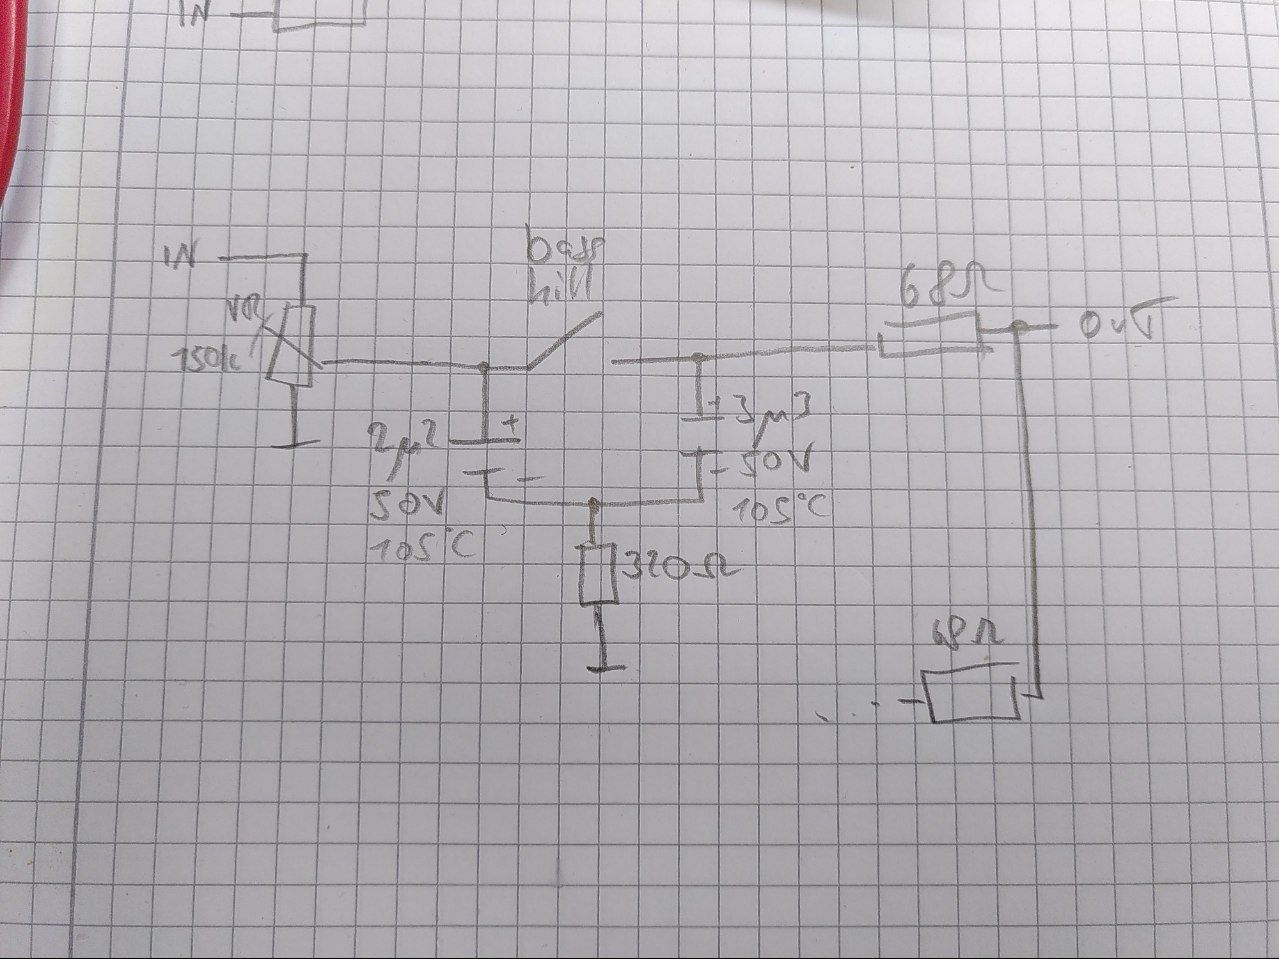 IN
IN
bass
kill
VR
150k
68Ω
OUT
2µ2
50V
105°C
+
-
+ 3µ3
- 50V
105°C
320Ω
68Ω